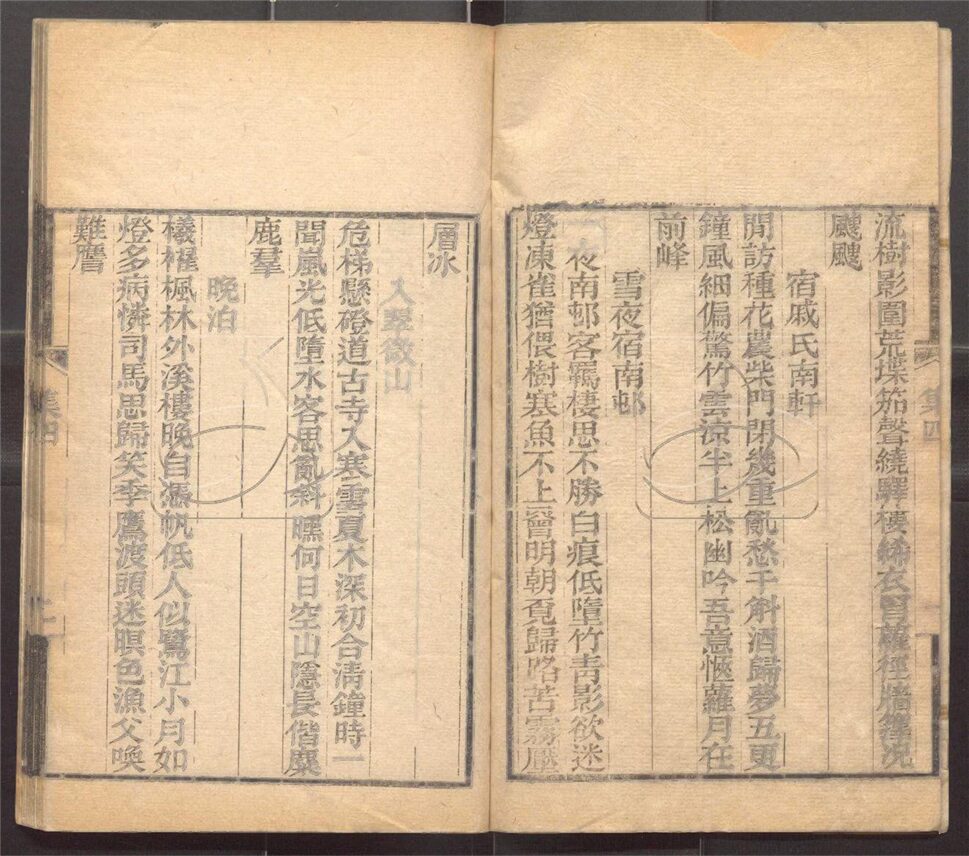 流樹影圍荒堞笳聲繞驛樓絺衣胃蘿徑牆篴况
颼颼
宿戚氏南軒
閒訪種花農柴門閉幾重亂愁千斛酒歸夢五更
鐘風細偏驚竹雲涼半上松幽吟吾意愜蘿月在
前峰
雪夜宿南邨
一夜南邨客羈棲思不勝白痕低墮竹青影欲迷
燈凍雀猶偎樹寒魚不上罾明朝覔歸路苦霧壓
集四
層冰
入翠微山
危梯懸磴道古寺入寒雲夏木深初合清鐘時一
聞嵐光低墮水客思亂斜曛何日空山隱長偕麋
鹿羣
晚泊
檥櫂楓林外溪樓晚自憑帆低人似鷺江小月如
燈多病憐司馬思歸笑季鷹渡頭迷暝色漁父喚
難譍
集四